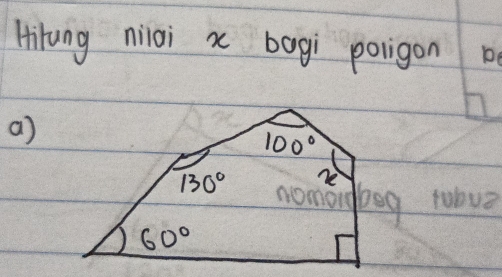 Hitung nilai x bagi poligon be
a)
100°
130°
x
60°